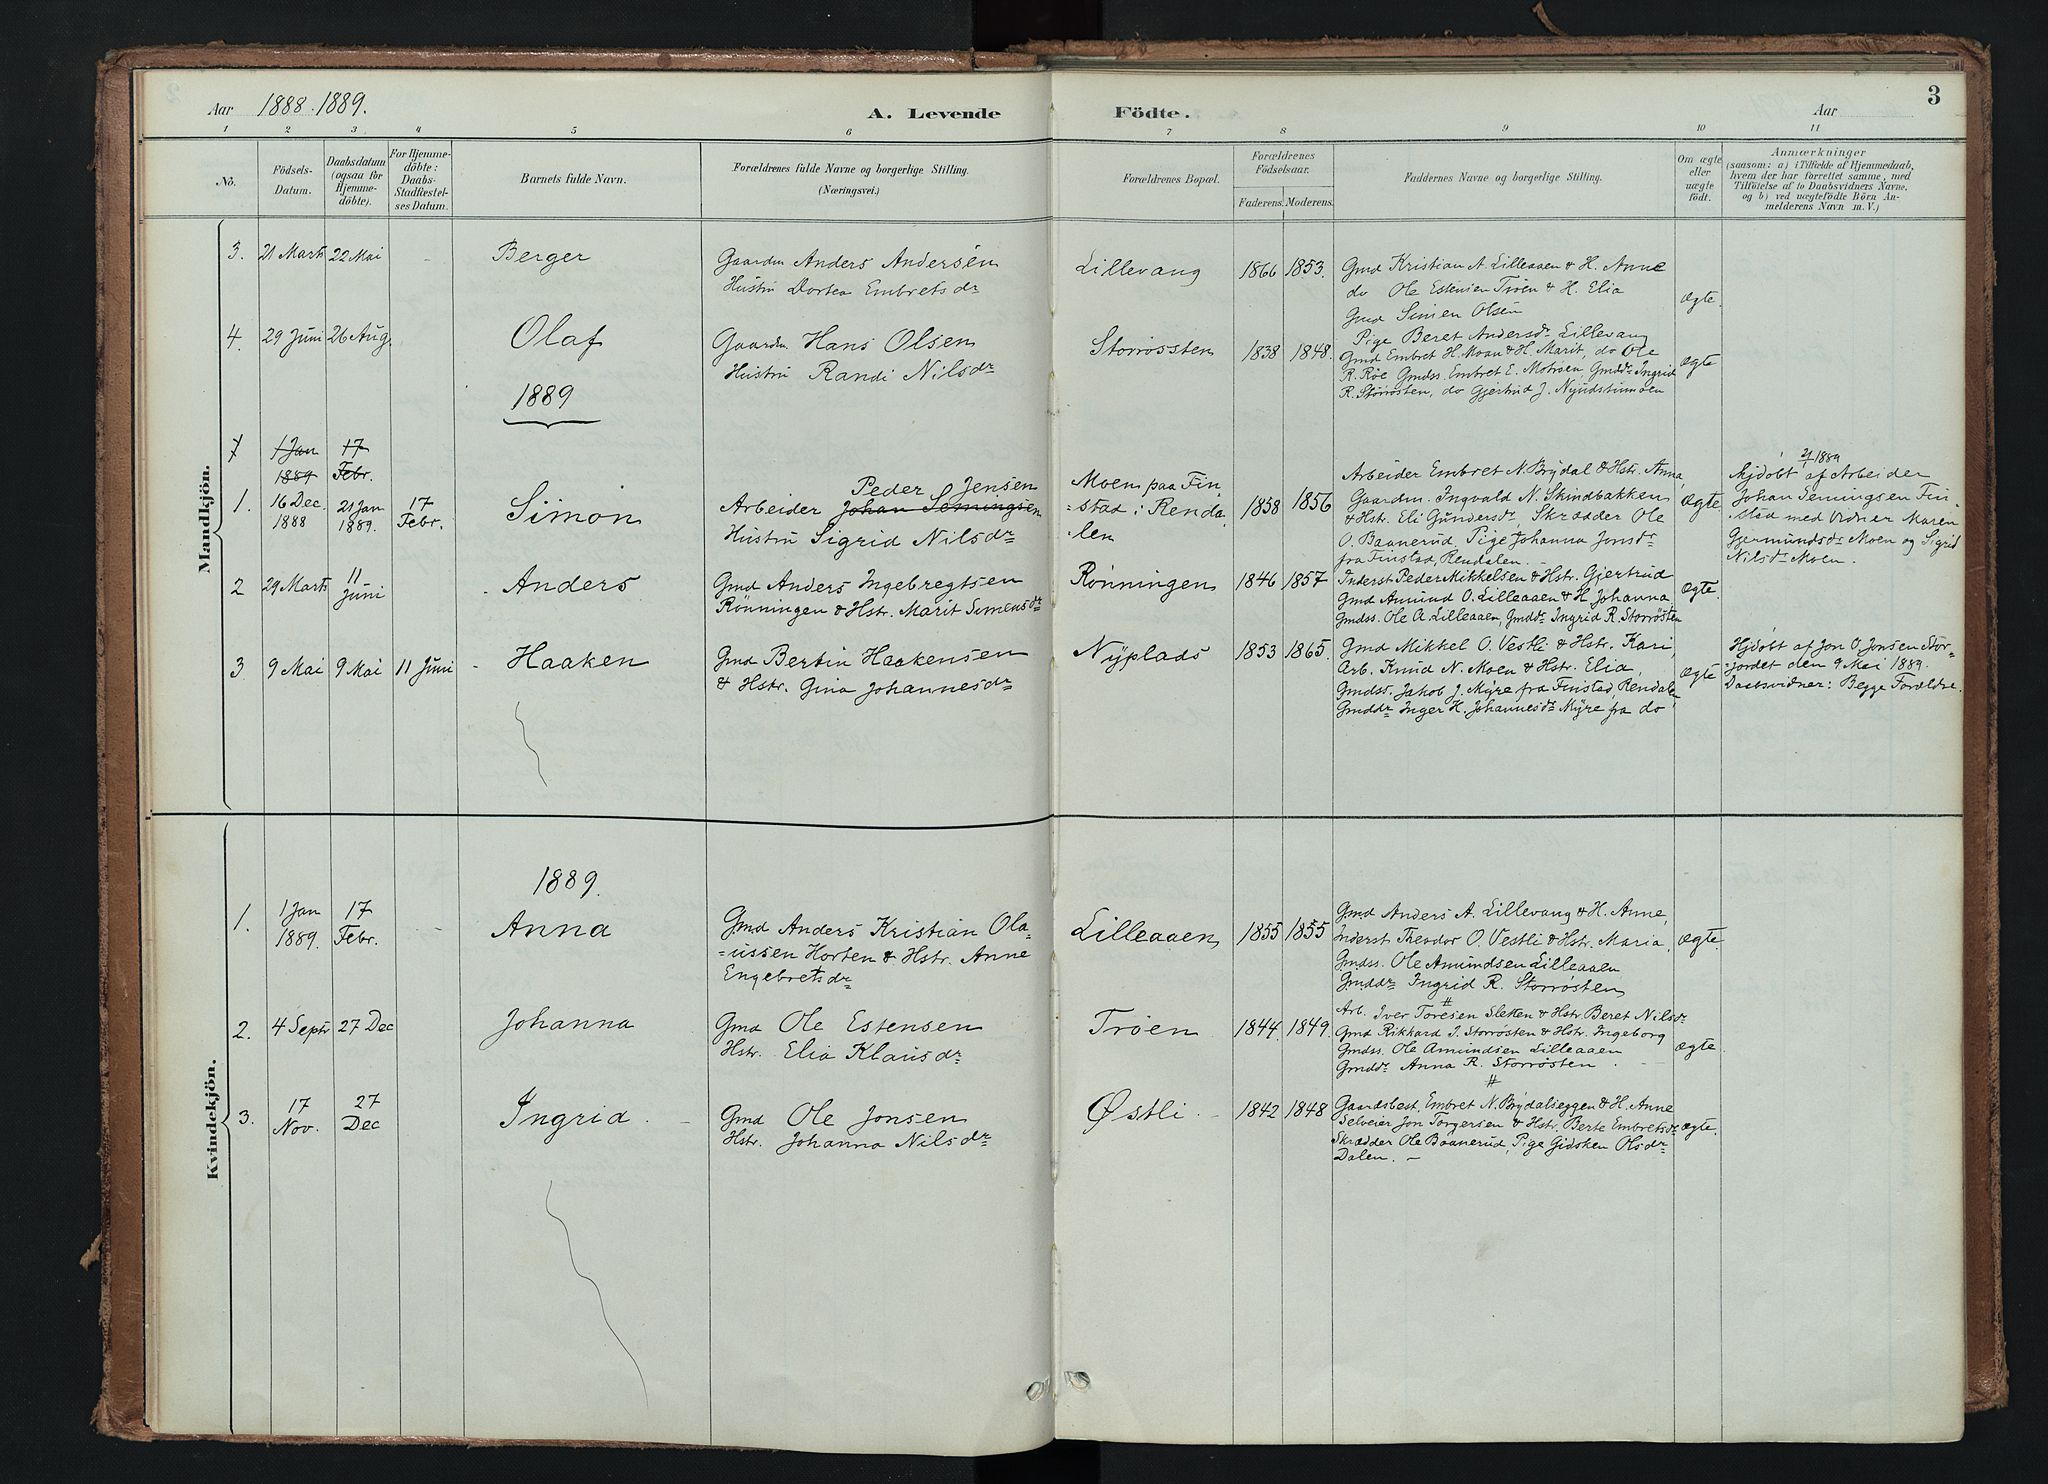 Aar 1888. 1889.
A. Levende Födte.
Aar
3
1 2 3 4 5 6 7 8 9 10 11
No.
Födsels-Datum.
Daabsdatum (ogsaa for Hjemme-döbte).
For Hjemme-döbte: Daabs-Stadfestel-ses Datum.
Barnets fulde Navn.
Forældrenes fulde Navne og borgerlige Stilling.
(Næringsvei.)
Forældrenes Bopæl.
Forældrenes Födselsaar.
Faderens. Moderens.
Faddernes Navne og borgerlige Stilling.
Om ægte eller uægte födt.
Anmærkninger
(saasom: a) i Tilfælde af Hjemmedaab,
hvem der har forrettet samme, med
Tilföielse af to Daabsvidners Navne,
og b) ved uægtefödte Börn An-
melderens Navn m. V.)
Mandkjön.
3. 21 Marts 22 Mai - Berger
Gaardm Anders Andersen
Hustru Dortea Embretsdr
Lillevang 1866 1853.
Gmd Kristian A. Lilleaaen & H. Anne
do Ole Estensen Trøen & H. Elia
Gmd Simen Olsen
Pige Beret Andersdr Lillevang
Ægte.
4. 29 Juni 26 Aug. Olaf
Gaardm. Hans Olsen
Hustru Randi Nilsdr
Storrøsten 1838 1848.
Gmd Embret H. Moan & H. Marit, do Ole
R. Røe Gmdss. Embret E. Motrøen, Gmddr Ingrid
R. Storrøsten, do Gjertrud J. Nyjudstumoen
Ægte
1889
1 Jan 1889 17 Febr.
1. 16 Dec. 1888 21 Jan 1889. 17 Febr. Simon
Peder Jensen
Arbeider Johan Semingsen
Hustru Sigrid Nilsdr
Moen paa Fin-
-stad i Renda-
len
1858 1856
Arbeider Embret N. Brydal & Hstr. Anna,
Gaardm. Ingvald N. Skindbakken
& Hstr. Eli Gundersdr, Skrædder Ole
O. Baanerud Pige Johanna Jonsdr
fra Finstad, Rendalen. -
Ægte
21/1 1889
Hjdøbt af Arbeider
Johan Semingsen Fin-
stad med Vidner Maren
Gjermundsdr Moen og Sigrid
Nilsdr Moen.
2 29 Marts 11 Juni - Anders
Gmd Anders Ingebregtsen
Rønningen & Hstr. Marit Simensdr
Rønningen 1846 1857
Inderst Peder Mikkelsen & Hstr. Gjertrud
Gmd Amund O. Lilleaaen & H Johanna
Gmdss. Ole A. Lilleaaen, Gmddr Ingrid R. Storrøsten
Ægte.
3 9 Mai 9 Mai 11 Juni - Haaken
Gmd Bertin Haakensen
& Hstr. Gina Johannesdr
Nyplads 1853 1865.
Gmd Mikkel O. Vestli & Hstr. Kari,
Arb. Knud N. Moen & Hstr. Elia,
Gmdss. Jakob J. Myre fra Finstad, Rendalen
Gmddr Inger H. Johannesdr Myre fra do
Ægte
Hjdøbt af Jon O. Jonsen Stor-
jordet den 9 Mai 1889.
Daabsvidner: Begge Forældre.
Kvindekjön.
1889.
1. 1 Jan 1889. 17 Febr. Anna
Gmd Anders Kristian Ola-
-ussen Horten & Hstr. Anne
Engebretsdr
Lilleaaen 1855 1855
Gmd Anders A. Lillevang & H. Anne,
Inderst Theodor O. Vestli & Hstr. Maria,
Gmdss. Ole Amundsen Lilleaaen
Gmddr Ingrid R. Storrøsten
Ægte.
2. 4 Septr 27 Dec Johanna
Gmd Ole Estensen
Hstr. Elia Klausdr
Trøen 1844. 1849.
Arb. Iver Toresen Sletten & Hstr Beret Nilsdr
Gmd Rikkard J. Storrøsten & Hstr. Ingeborg
Gmdss. Ole Amundsen Lilleaaen
Gmddr Anna R. Storrøsten.
Ægte.
3. 17 Nov. 27 Dec Ingrid. -
Gmd Ole Jonsen
Hstr. Johanna Nilsdr
Østli - 1842 1848
Gaardsbest. Embret N. Brydalseggen & H. Anne
Selveier Jon Torgersen & Hstr. Berte Embretsdr
Skrædder Ole Baanerud, Pige Gidsken Olsdr
Dalen. -
Ægte.